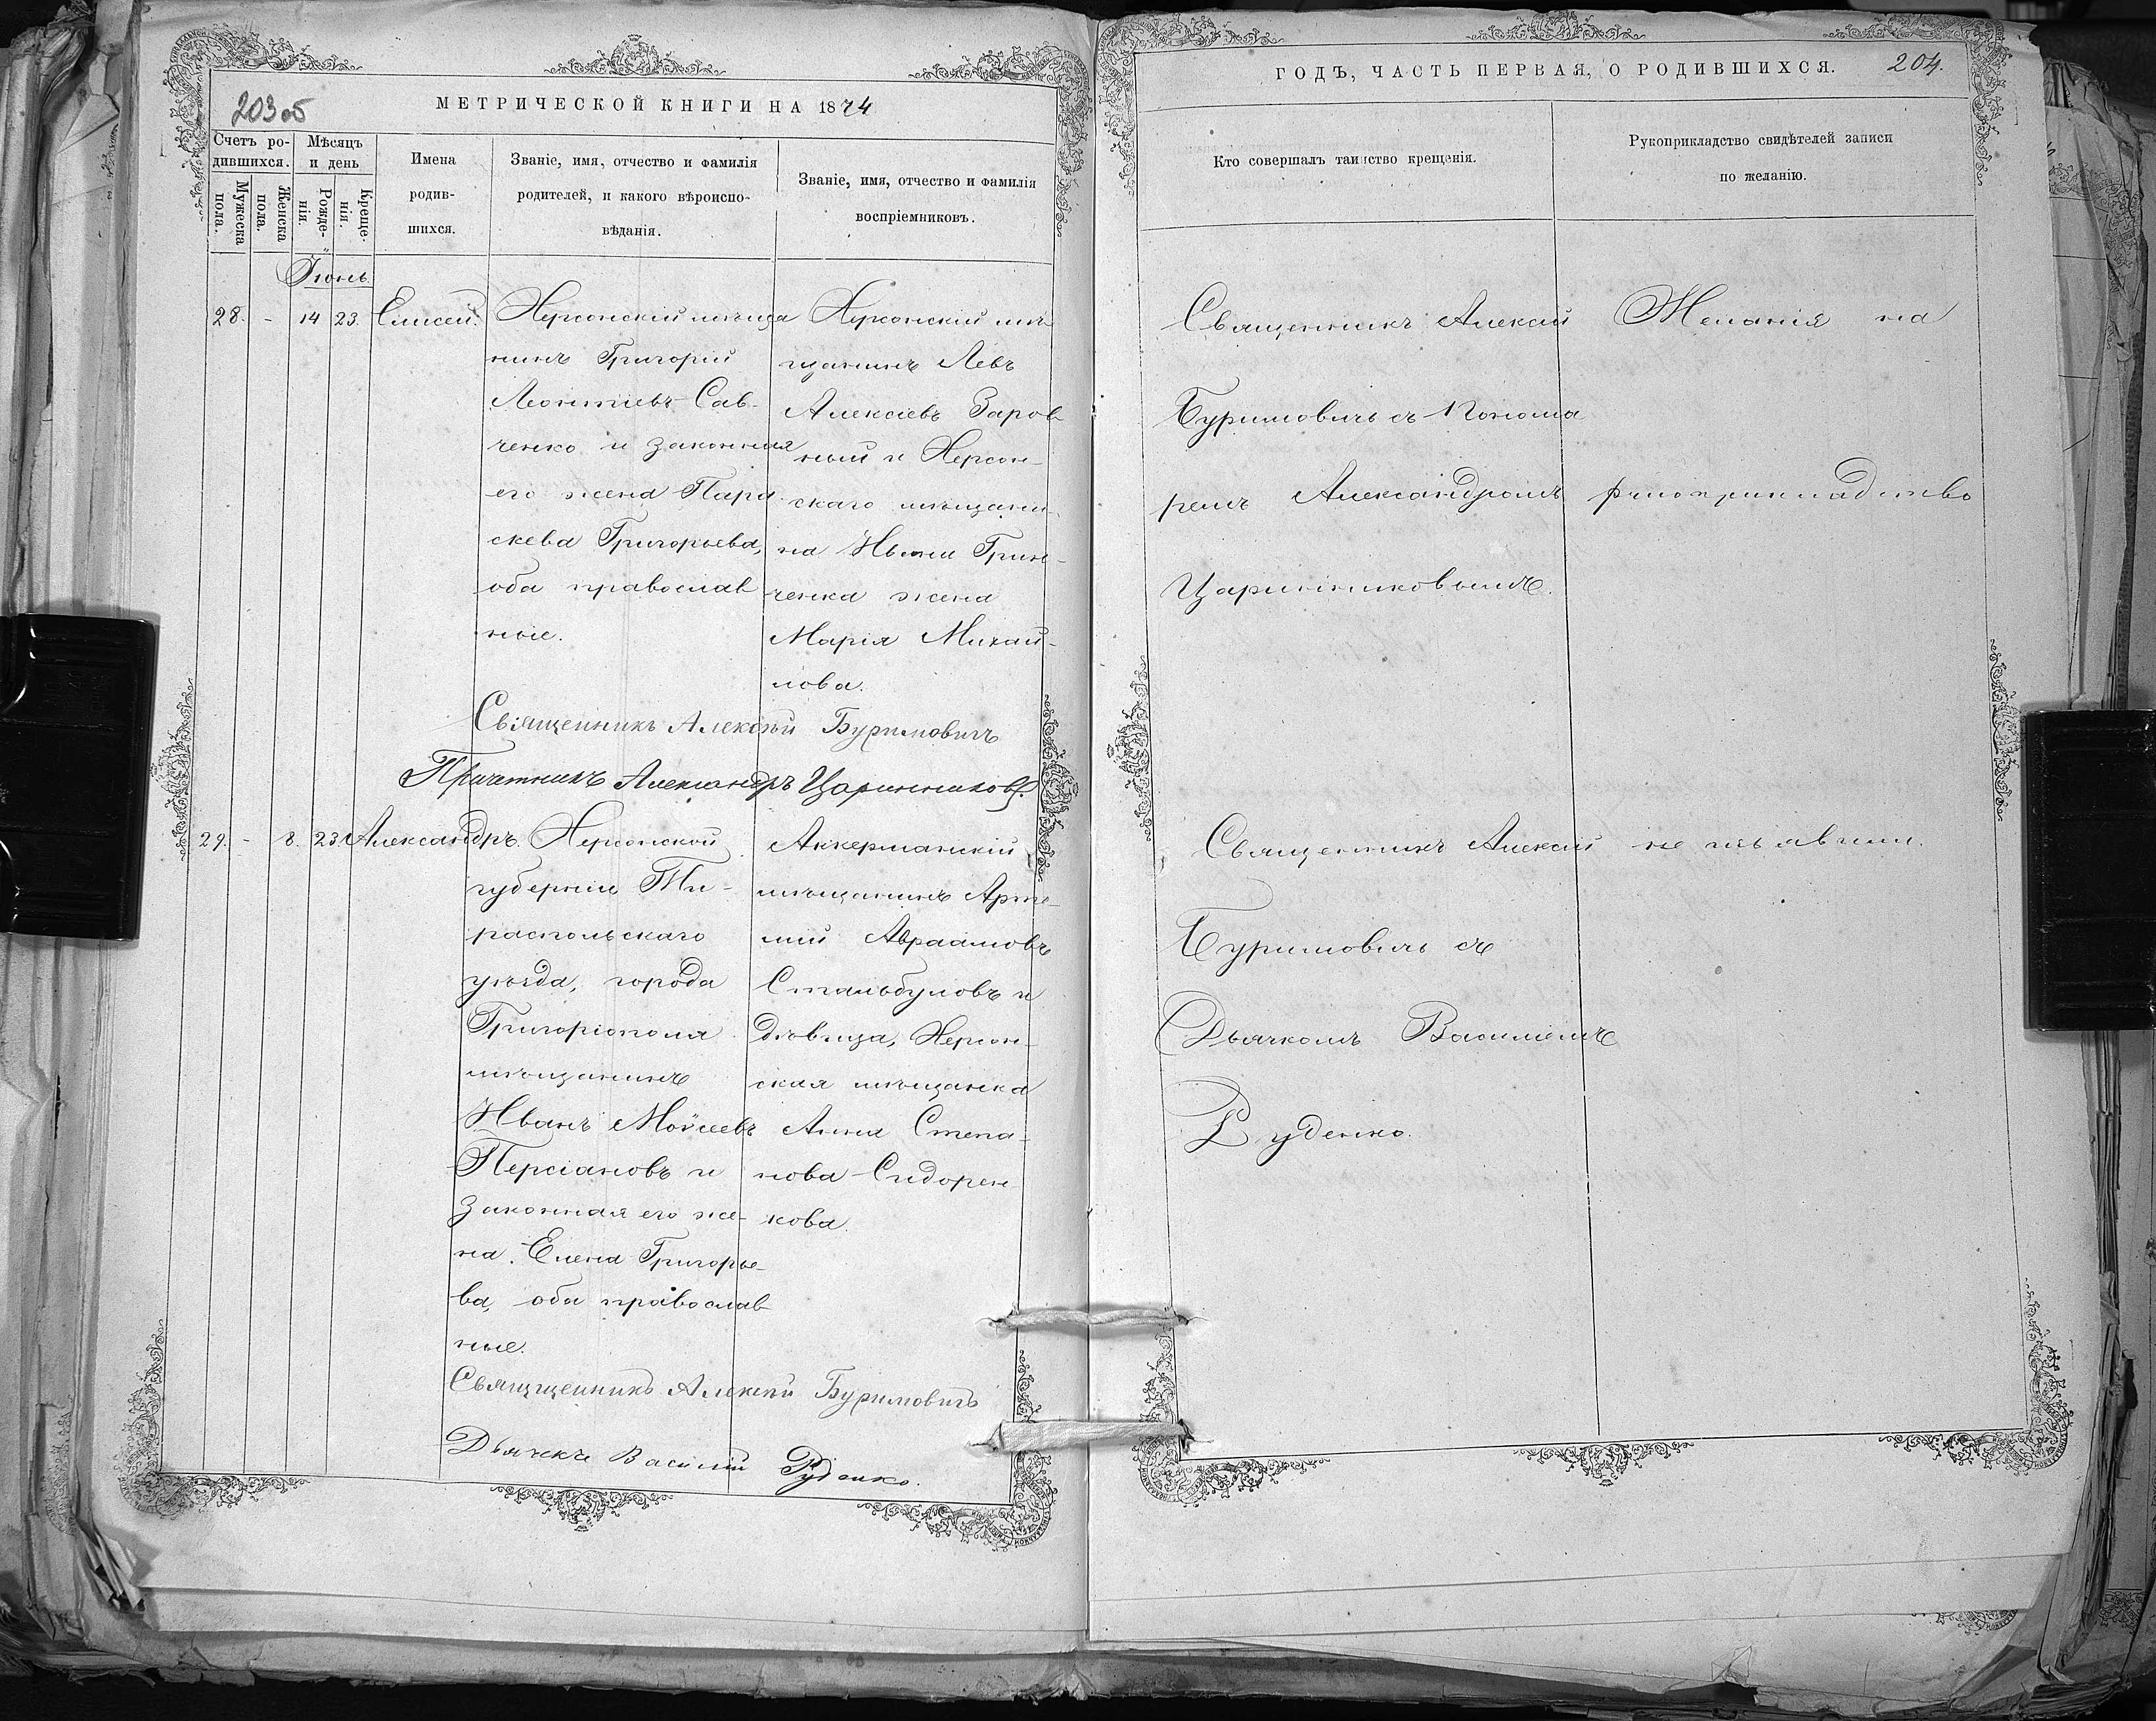 203 об
МЕТРИЧЕСКОЙ КНИГИ НА 1874
Счетъ ро-
дившихся.
Мужеска
пола.
Женска
пола.
Мѣсяцъ
и день
Рожде-
нія.
Креще-
нія.
Имена
родив-
шихся.
Званіе, имя, отчество и фамилія
родителей, и какого вѣроиспо-
вѣданія.
Званіе, имя, отчество и фамилія
воспріемниковъ.
Іюнь.
28. - 14 23. Елисей.
Херсонскій мѣща
нинъ Григорій
Леонтіевъ Сав-
ченко и законная
его жена Пара
скева Григорьева,
оба православ
ные.
Херсонскій мѣ
щанинъ Левъ
Алексѣевъ Заров
ный и Херсон-
скаго мѣщани-
на Ивана Грин-
ченка жена
Марія Михай-
лова.
Священникъ Алексѣй Буримовичъ
Причетникъ Александръ Царинниковъ.
29. - 8. 23. Александръ.
Херсонской
губерніи Ти-
распольскаго
уѣзда, города
Григоріополя
мѣщанинъ
Иванъ Мойсеевъ
Персіановъ и
законная его же-
на Елена Григорье-
ва, оба православ
ные.
Аккерманскій
мѣщанинъ Арте-
мій Авраамовъ
Стамбуловъ и
дѣвица, Херсон-
ская мѣщанка
Анна Степа-
нова Сидорен
кова.
Священникъ Алексѣй Буримовичъ
Дьячекъ Василій Руденко.
ГОДЪ, ЧАСТЬ ПЕРВАЯ, О РОДИВШИХСЯ.
204.
Кто совершалъ таинство крещенія.
Рукоприкладство свидѣтелей записи
по желанію.
Священникъ Алексѣй
Буримовичъ съ Понома
ремъ Александромъ
Царинниковымъ.
Желанія на
рукоприкладство
Священникъ Алексѣй
Буримовичъ съ
Дьячкомъ Василіемъ
Руденко.
не изъявили.